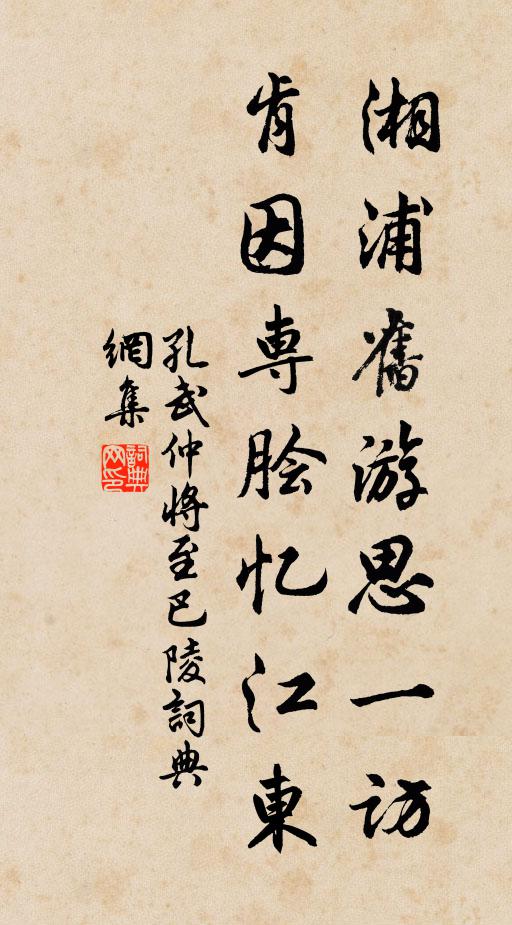 湘浦舊游思一访
肯因専脍忆江東
孔武仲将至巴陵詞典
網集
詞典网印